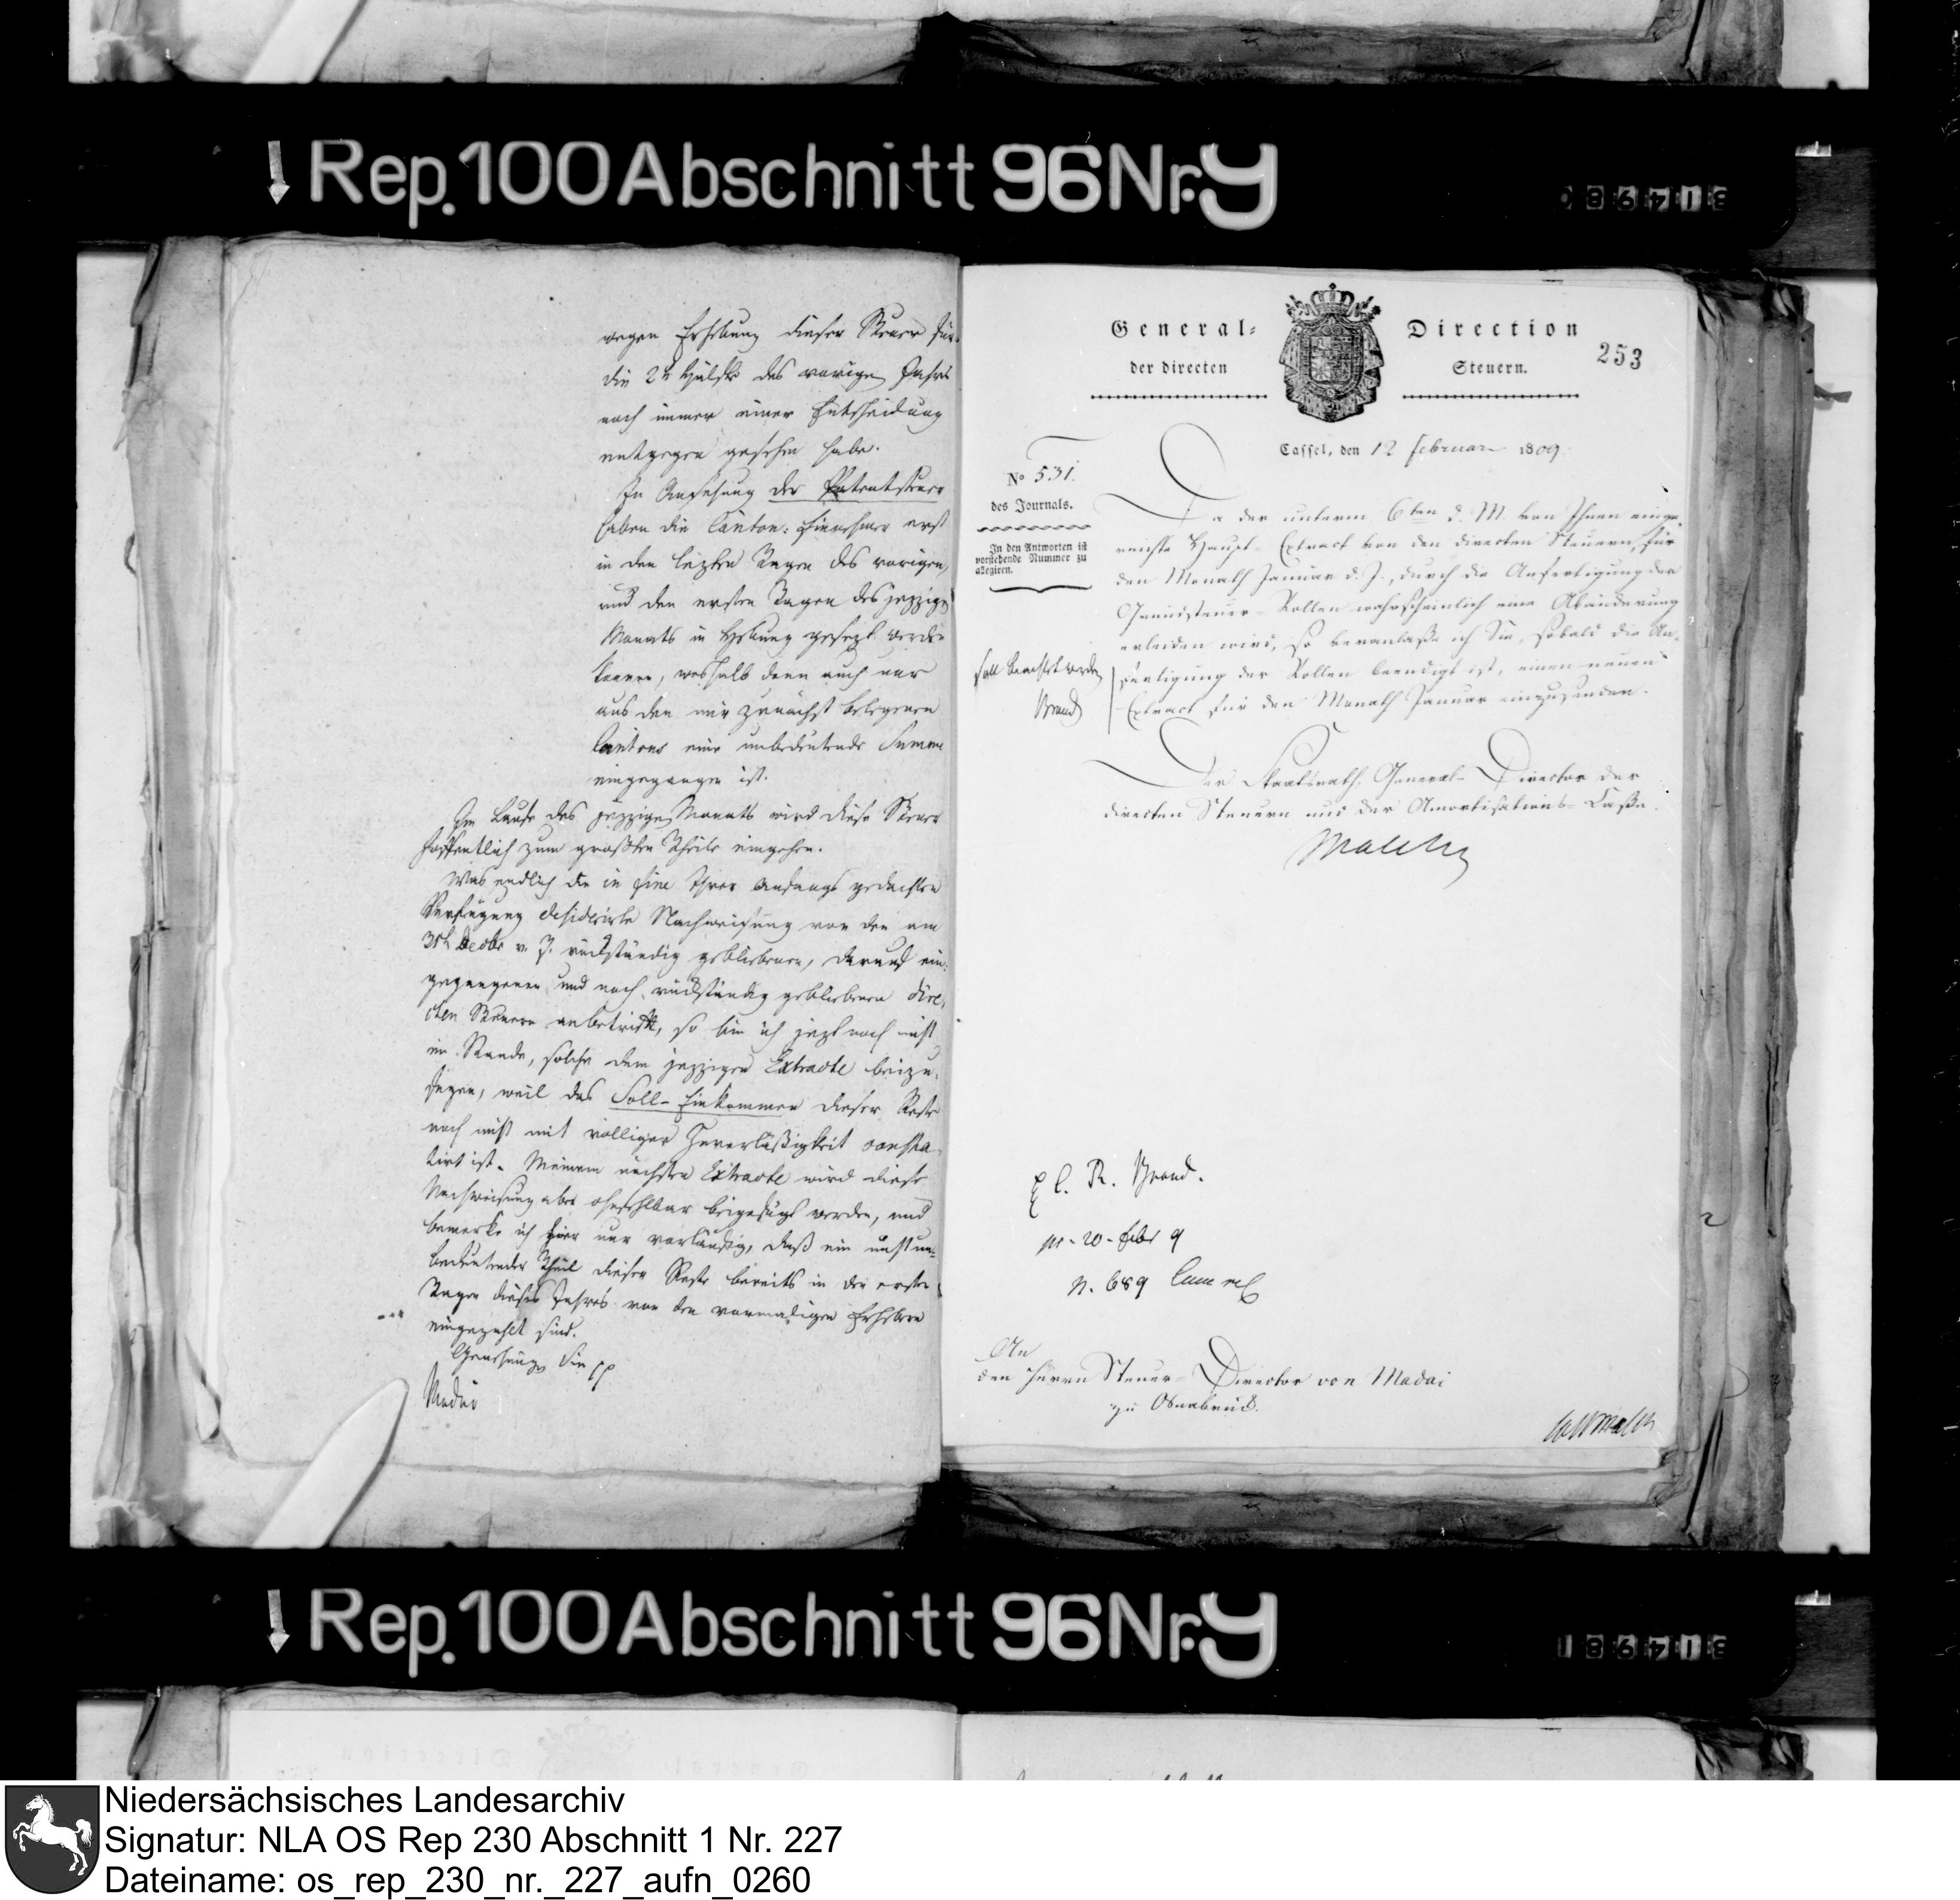 Rep. 100 Abschnitt 96 Nr. 9
314980
wegen Erhebung dieser Steuer für
die 2te Hälfte des vorigen Jahrs
noch immer einer Entscheidung
entgegen gesehen habe.
In Ansehung der Patentsteuer
haben die Canton: Einnehmer erst
in den lezten Tagen des vorigen,
und den ersten Tagen des jezzigen
Monats in Hebung gesezt werden
können, weshalb denn auch nur
aus den mir zunächst belegenen
Cantons eine unbedeutende Summe
eingegangen ist.
Im Laufe des jezzigen Monats wird diese Steuer
hoffentlich zum größten Theile eingehen.
Was endlich die in fine Ihrer Anfangs gedachten
Verfügung desiderirte Nachweisung von den am
31t Decbr v. J. rückständig gebliebenen, darauf ein-
gegangenen und noch rückständig gebliebenen dire-
cten Steuern anbetrifft, so bin ich jezt noch nicht
im Stande, solche dem jezzigen Extracte beizu-
fügen, weil das Soll-Einkommen dieser Reste
noch nicht mit völliger Zuverläßigkeit consta-
tirt ist. Meinem nächsten Extracte wird diese
Nachweisung aber ohnfehlbar beigefügt werden, und
bemerke ich hier nur vorläufig, daß ein nicht un-
bedeutender Theil dieser Reste bereits in den ersten
Tagen dieses Jahres von den vormaligen Erhebern
eingezahlt sind.
Genehmigen Sie pp
Madai
General- Direction
der directen Steuern.
253
Cassel, den 12 Februar 1809.
No 531.
des Journals.
In den Antworten ist
vorstehende Nummer zu
allegiren.
Da der unterm 6ten d. M. von Ihnen einge-
reichte Haupt-Extract von den directen Steuern, für
den Monath Januar d. J., durch die Anfertigung der
Grundsteuer-Rollen wahrscheinlich eine Abänderung
erleiden wird, so veranlaße ich Sie, sobald die An-
fertigung der Rollen beendigt ist, einen neuen
Extract für den Monath Januar einzusenden.
soll beachtet werden
Brand
Der Staatsrath, General-Director der
directen Steuern und der Amortisations-Caße.
Malchus
C. R. Brand.
pr. 20. Febr 9
n. 689
An
den Herrn Steuer-Director von Madai
zu Osnabrück.
Rep. 100 Abschnitt 96 Nr. 9
314981
Niedersächsisches Landesarchiv
Signatur: NLA OS Rep 230 Abschnitt 1 Nr. 227
Dateiname: os_rep_230_nr._227_aufn_0260